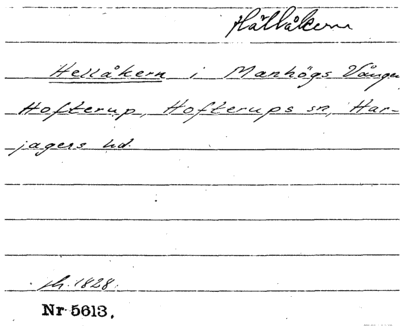 Hällåkern
Hellåkern i Manhögs Vången
Hofterup, Hofterups sn, Har-
jagers hd.
sk. 1828.
Nr 5613.